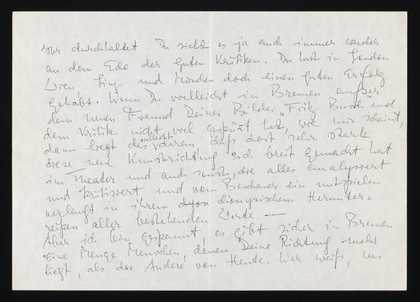 durchhaltet Du siehst es ja auch immer wieder
an dem Echo der guten Kritiken. Du hast in London
und München doch einen guten Erfolg
gehabt. Wenn Du vielleicht in Bremen außer
dem neuen Freund Deiner Bilder, und
der Kritik nicht viel gehabt hast, wie mir scheint,
dann liegt das daran, daß dort sehr stark
diese neue Kunstrichtung sich breit gemacht hat
im Theater und auch sonst, die alles analysiert
und kritisiert und vom Beschauer ein mitspielen
verlangt in ihrem dionysischen Herunter-
reißen aller bestehenden Werte. —
Aber ich bin gespannt, es gibt sicher in Bremen
eine Menge Menschen, denen Deine Richtung mehr
liegt, als das Andere von Heute. Wer weiß, wo